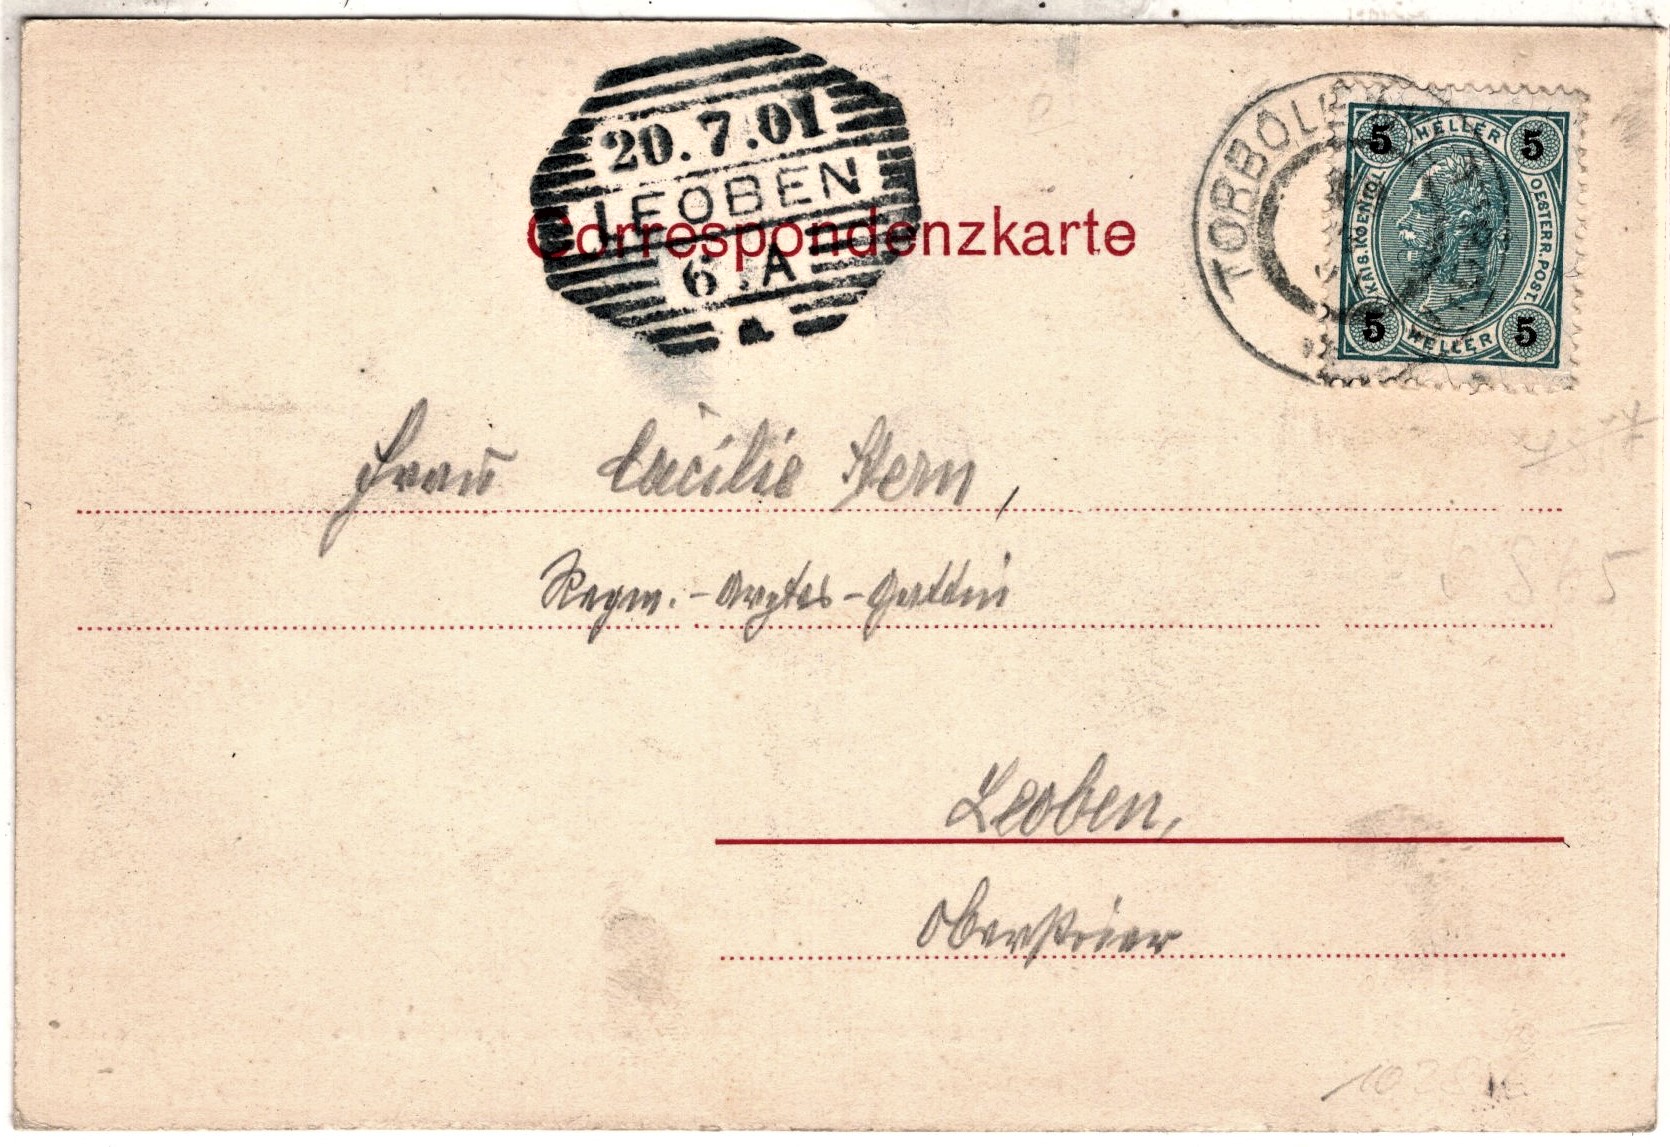 20.7.01
LEOBEN
6.A
Correspondenzkarte
TORBOLE
5 HELLER 5
KAIS. KOENIGL. OESTERR. POST.
5 HELLER 5
Frau Cäcilie Stern,
Regm.-Arztes-Gattin
Leoben,
Obersteier